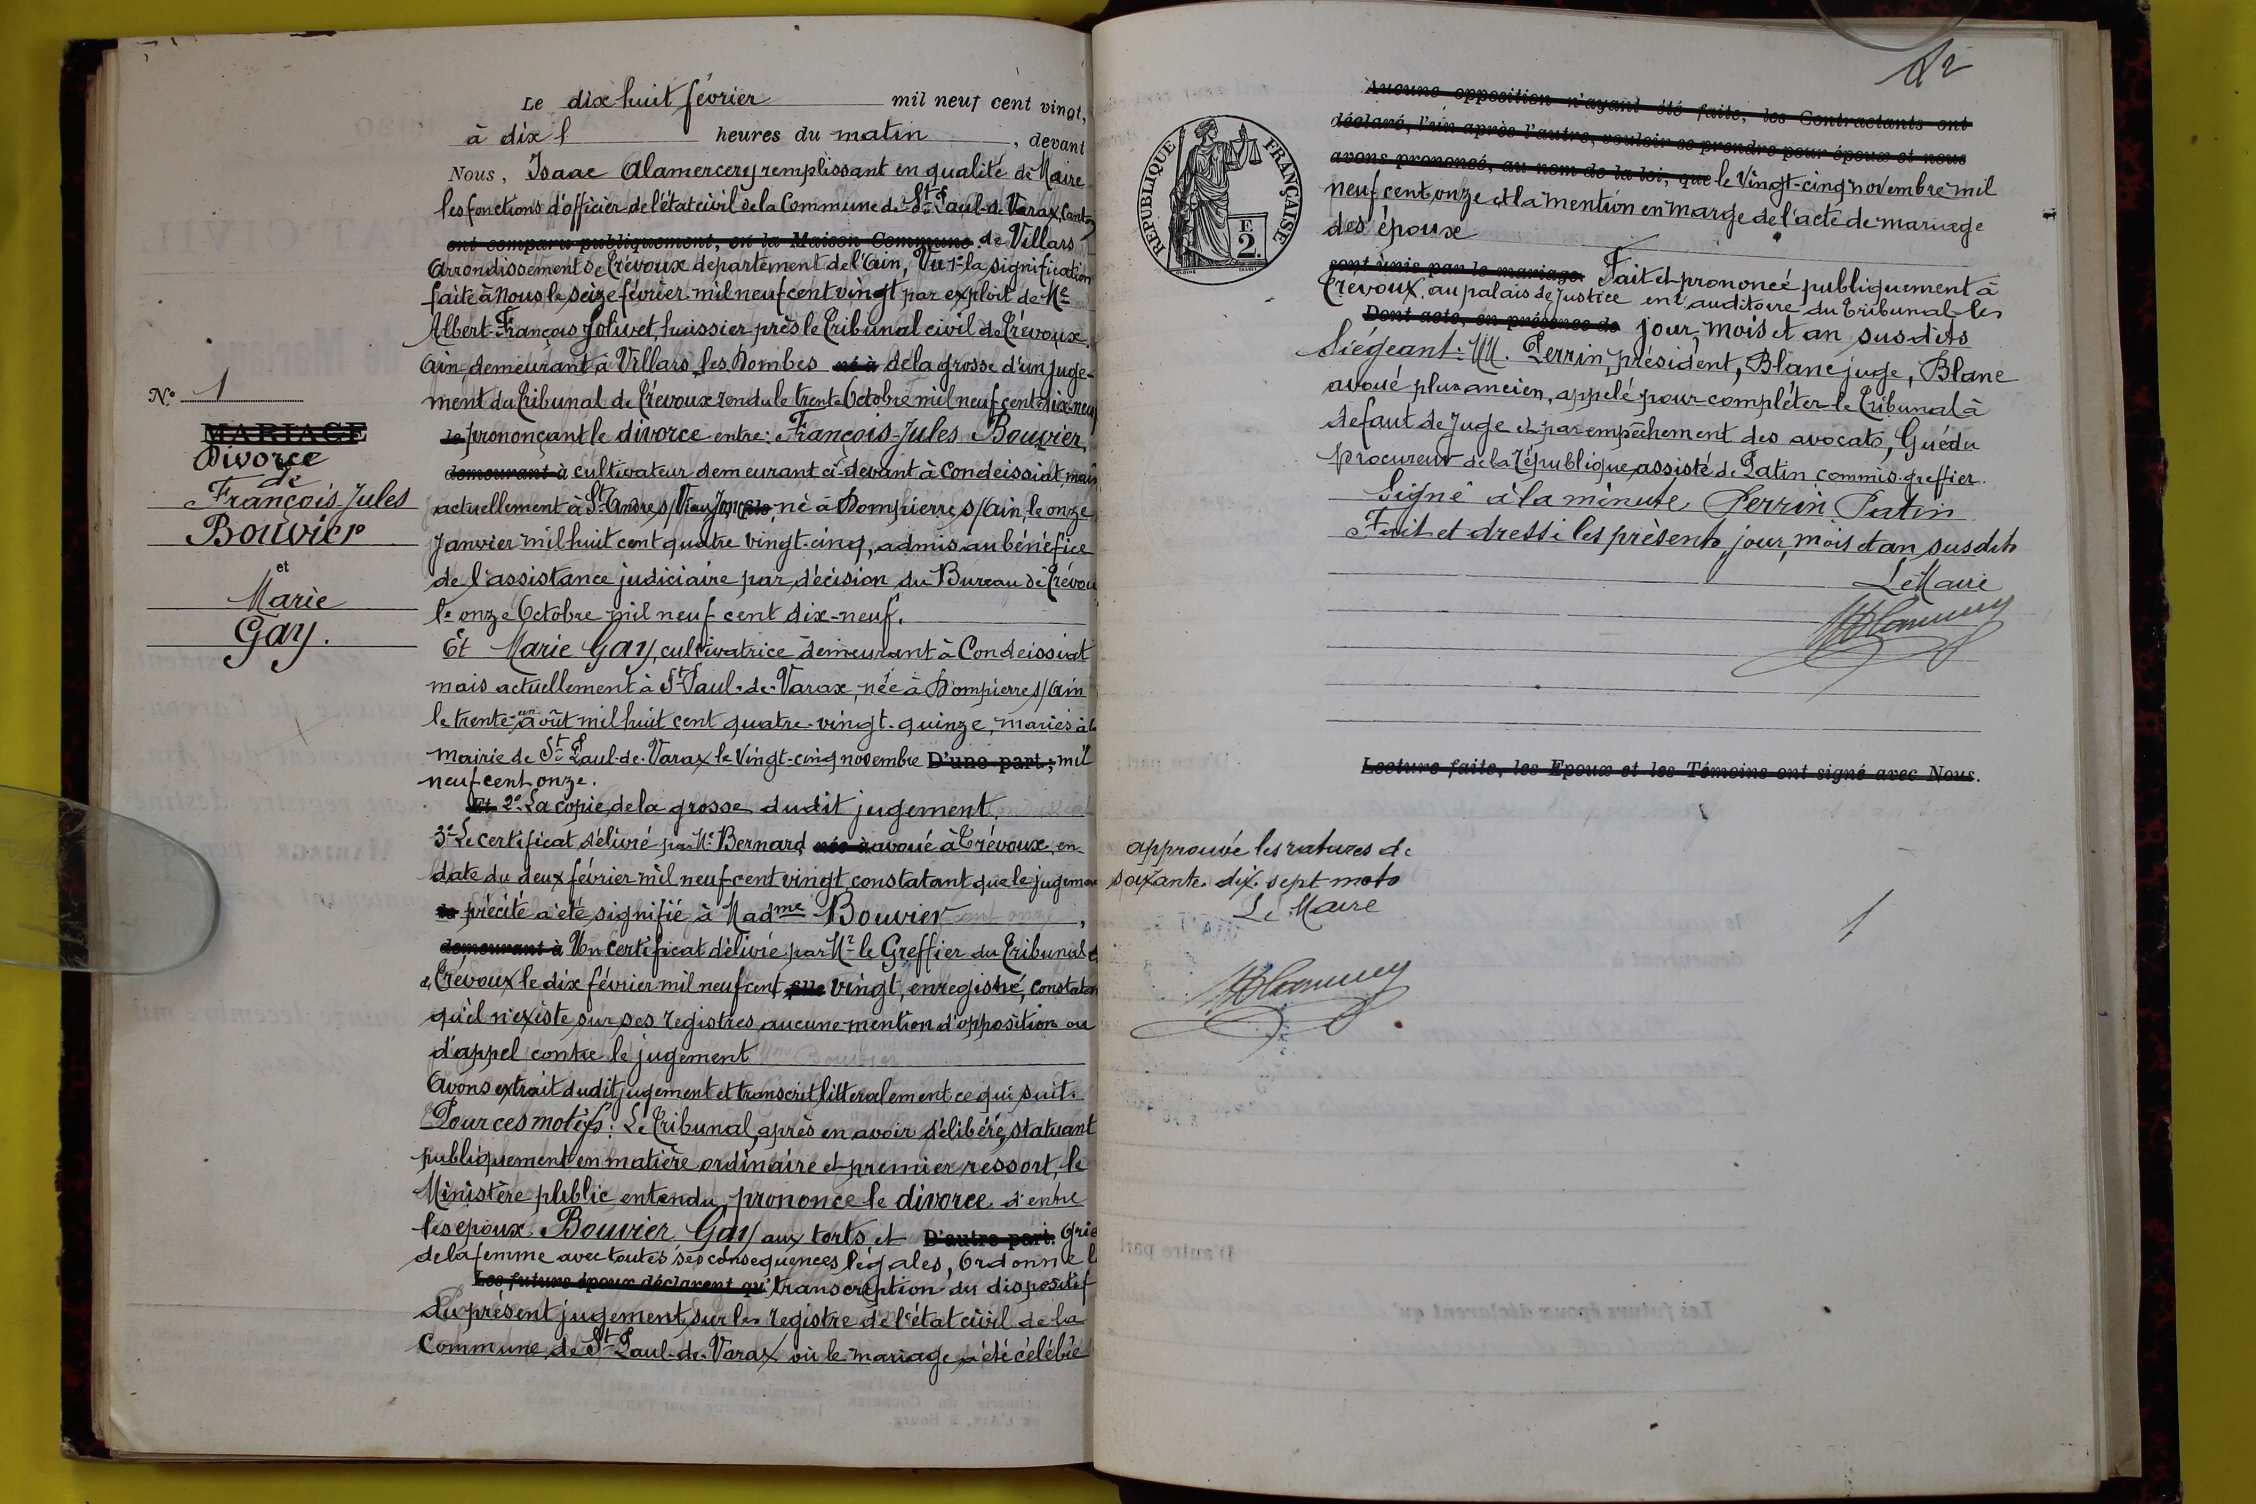 Le dix huit février mil neuf cent vingt,
à dix h heures du matin, devant
Nous, Isaac Alamercery remplissant en qualité de Maire
les fonctions d'officier de l'état civil de la Commune de St Paul-de Varax, Canton
ont comparu publiquement, en la Maison Commune de Villars
Arrondissement de Trévoux département de l'Ain, Vu 1º la signification
faite à Nous le seize février mil neuf cent vingt par exploit de Me
Albert-François Jolivet, huissier près le Tribunal civil de Trévoux
Ain, demeurant à Villars les Dombes né à de la grosse d'un juge-
ment du Tribunal de Trévoux rendu le trente Octobre mil neuf cent dix-neuf
le prononçant le divorce entre: François-Jules Bouvier,
demeurant à cultivateur demeurant ci-devant à Condeissiat mais
actuellement à St André s/ Vieux Jonc né à Dompierre s/ Ain, le onze
Janvier mil huit cent quatre vingt-cinq, admis au bénéfice
de l'assistance judiciaire par décision du Bureau de Trévoux
le onze Octobre mil neuf cent dix-neuf.
Et Marie Gay, cultivatrice demeurant à Condeissiat
mais actuellement à St Paul-de-Varax, née à Dompierre s/ Ain
le trente-un août mil huit cent quatre-vingt-quinze, mariés à la
mairie de St Paul-de-Varax le vingt-cinq novembre D'une part; mil
neuf cent onze.
Et 2º La copie de la grosse dudit jugement,
3º Le certificat délivré par Me Bernard née à avoué à Trévoux, en
date du deux février mil neuf cent vingt constatant que le jugement
le précité a été signifié à Madme Bouvier,
demeurant à Un certificat délivré par Mr le Greffier du Tribunal
de Trévoux le dix février mil neuf cent vingt, enregistré, constatant
qu'il n'existe sur ses registres aucune mention d'opposition ou
d'appel contre le jugement
Avons extrait dudit jugement et transcrit litteralement ce qui suit.
Pour ces motifs: Le Tribunal, après en avoir délibéré, statuant
publiquement en matière ordinaire et premier ressort, le
Ministère public entendu, prononce le divorce d'entre
les epoux Bouvier Gay aux torts et D'autre part. grie
de la femme avec toutes ses consequences légales, Ordonne l
Les futurs époux déclarent qu' transcription du dispositif
du présent jugement sur les registre de l'état civil de la
Commune de St Paul-de-Varax où le mariage a été célébré
Nº 1
MARIAGE
Divorce
de
François Jules
Bouvier
et
Marie
Gay.
RÉPUBLIQUE FRANÇAISE
F
2.
Aucune opposition n'ayant été faite, les Contractants ont
déclaré, l'un après l'autre, vouloir se prendre pour époux et nous
avons prononcé, au nom de la loi, que le vingt-cinq novembre mil
neuf cent onze et la mention en marge de l'acte de mariage
des époux
sont unis par le mariage. Fait et prononcé publiquement à
Trévoux, au palais de Justice en l'auditoire du Tribunal les
Dont acte, en présence de jour, mois et an susdits
Siégeant: MM. Perrin, président, Blanc juge, Blanc
avoué plus ancien, appelé pour compléter le Tribunal à
defaut de Juge et par empêchement des avocats, Guédu
procureur de la République, assisté de Patin commis-greffier.
Signé à la minute, Perrin Patin
Fait et dressé les présents jour, mois et an susdits
Le Maire
Lecture faite, les Epoux et les Témoins ont signé avec Nous.
approuvée les ratures de
soixante-dix-sept mots
Le Maire
1